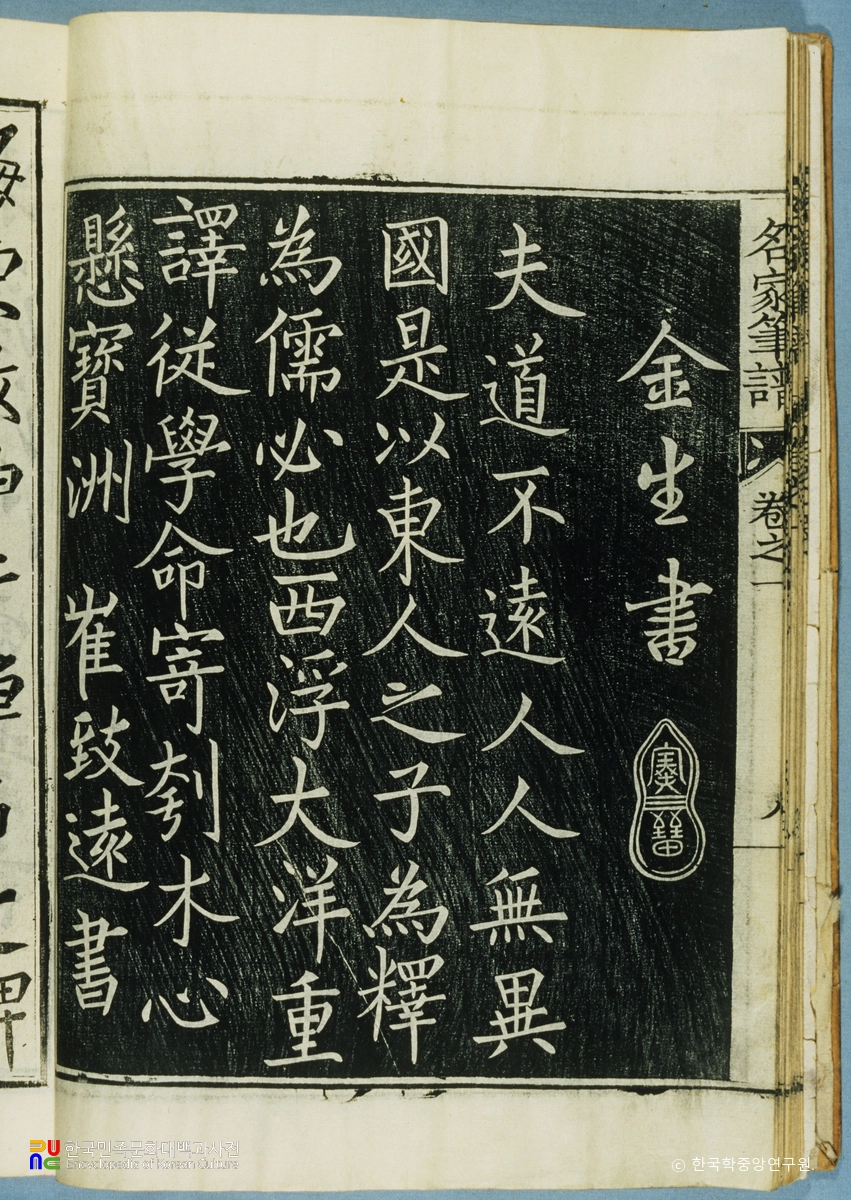 名家筆譜 卷之一
金生書
夫道不遠人人無異
國是以東人之子為釋
為儒必也西浮大洋重
譯從學命寄刳木心
懸寶洲 崔致遠書
한국민족문화대백과사전
Encyclopedia of Korean Culture
© 한국학중앙연구원.